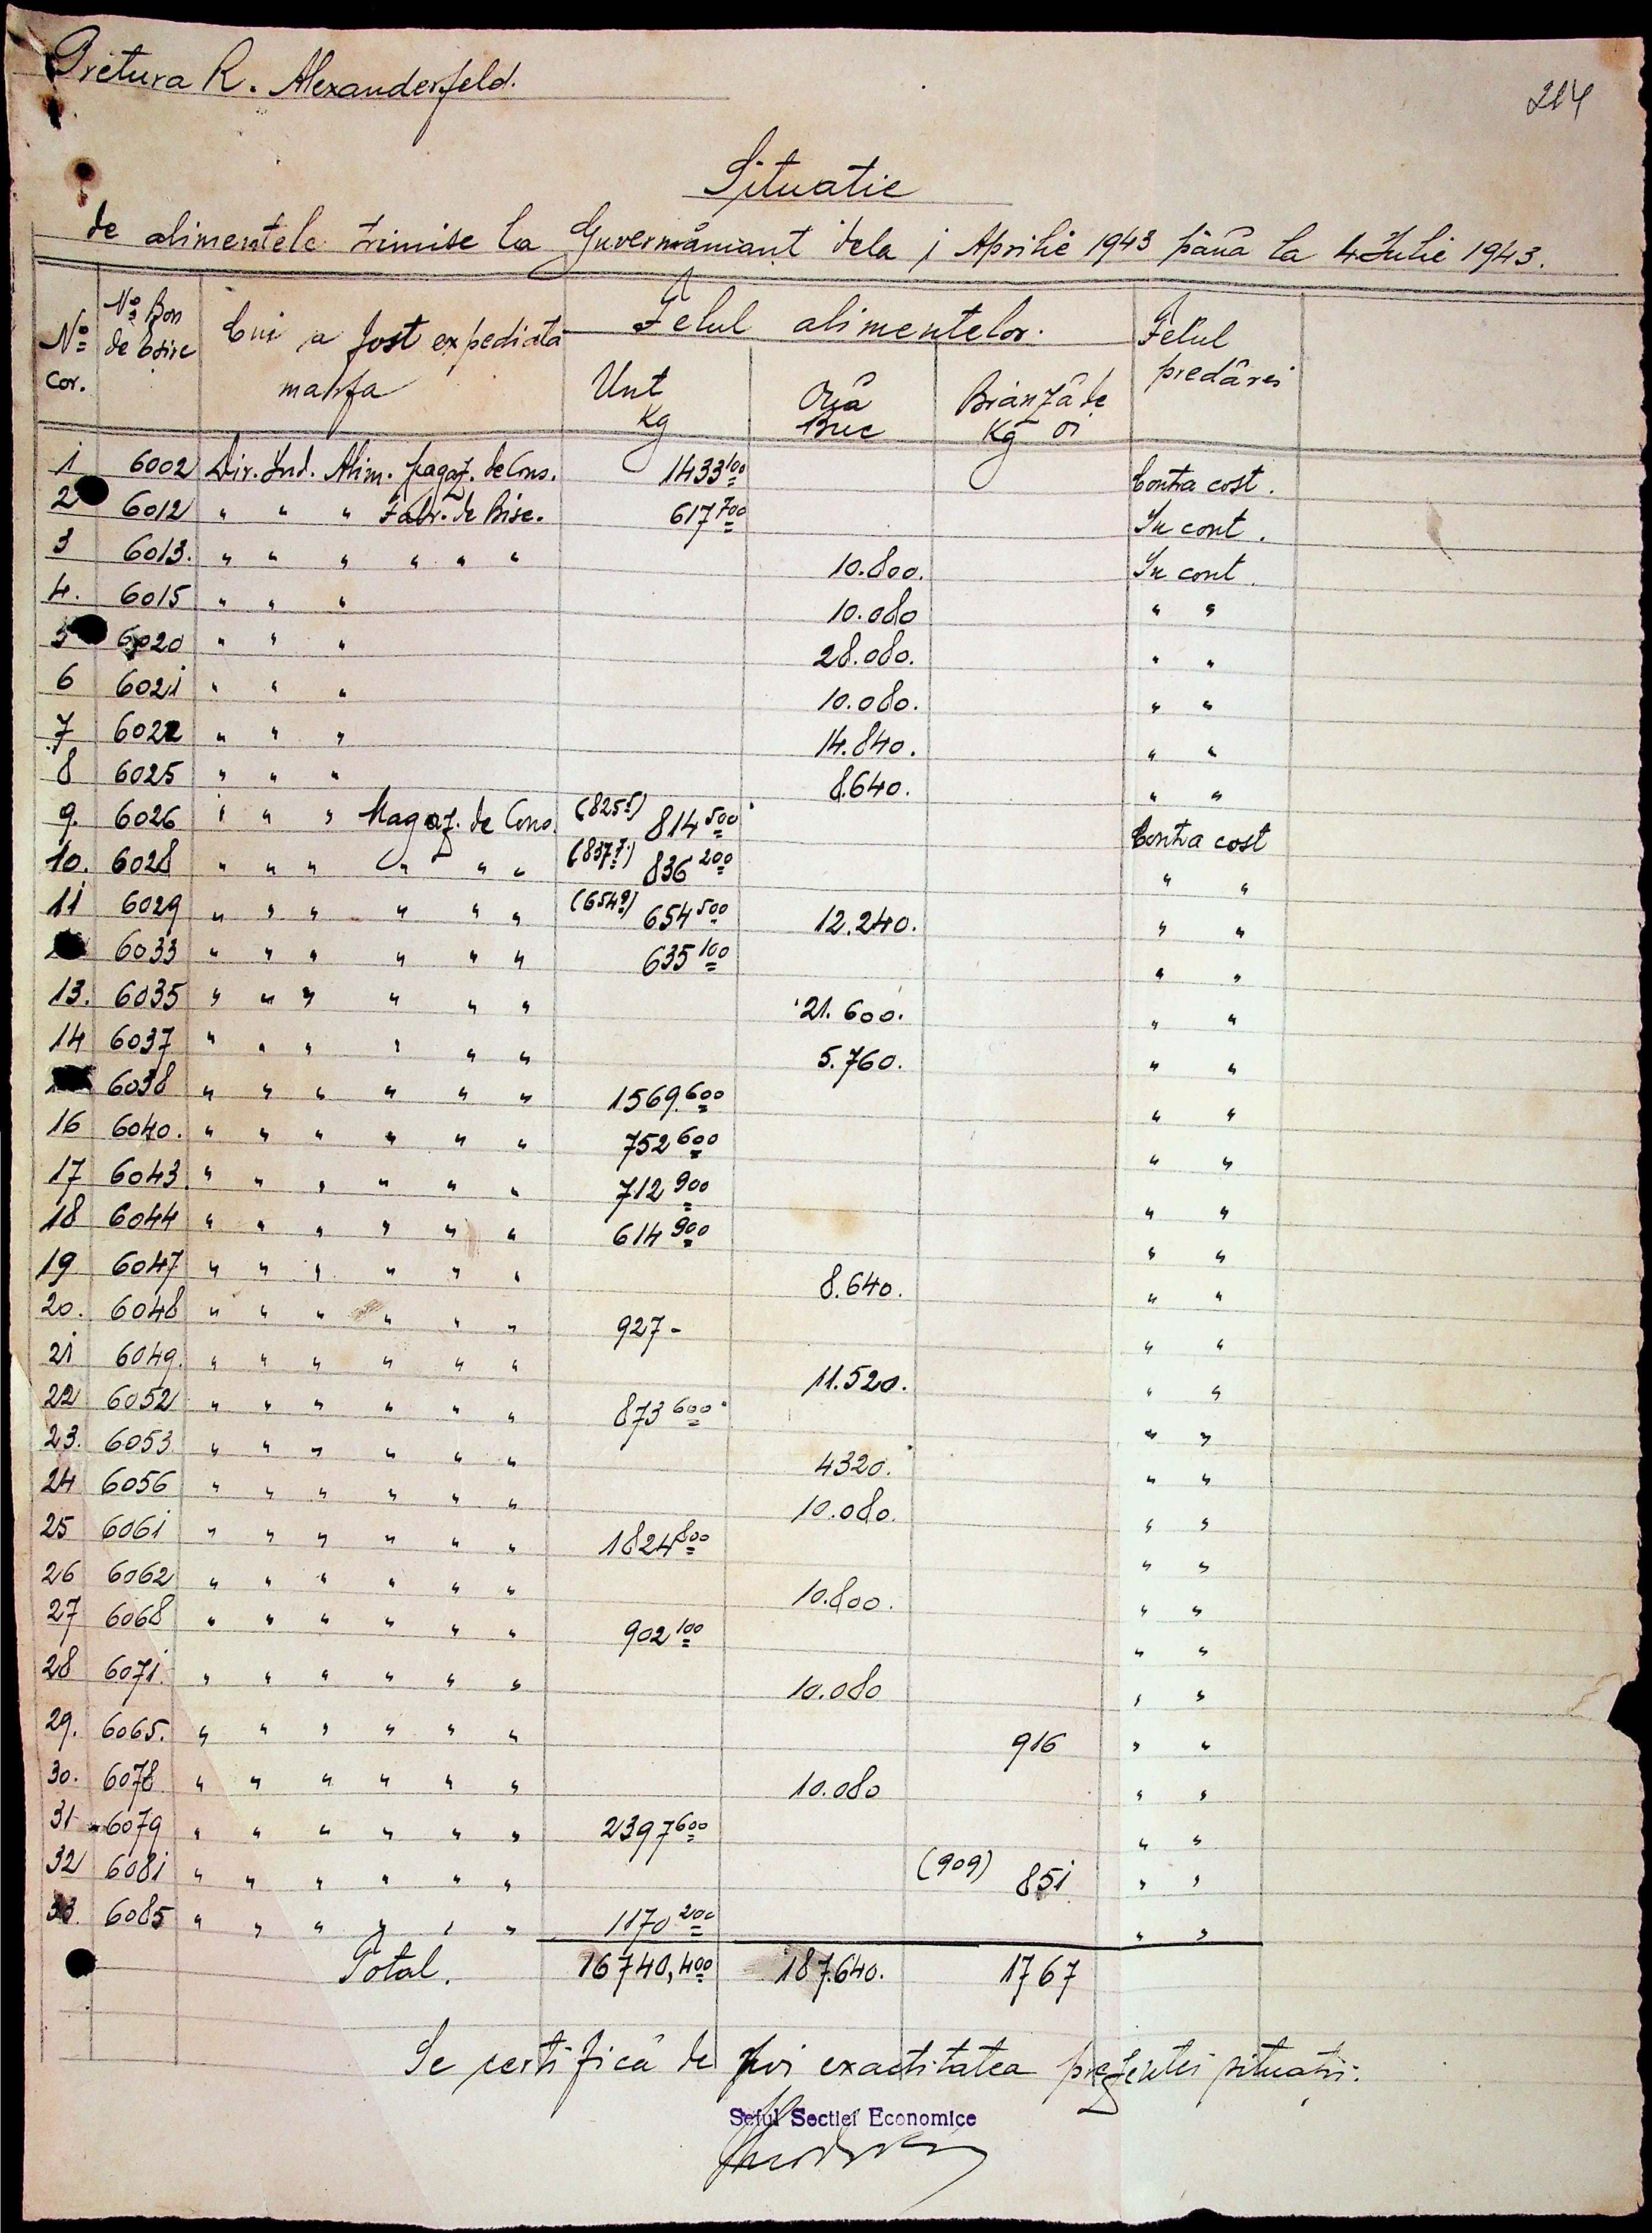 Pretura R. Alexanderfeld.
214
Situatie
de alimentele trimise la Guvernământ dela 1 Aprilie 1943 până la 4 Iulie 1943.
No cor. | No Bon de | Cui a fost expediată marfa | Felul alimentelor. | Felul predărei
Unt Kg | Ouă Buc | Brânză de oi Kg
1 6002 Dir. Ind. Alim. Magaz. de Cons. 1433 100 Contra cost.
2 6012 " " " Fabr. de Bisc. 617 700 In cont.
3 6013. " " " " " " 10.800. In cont.
4. 6015 " " " 10.080 " "
5 6020 " " " 28.080. " "
6 6021 " " " 10.080. " "
7 6022 " " " 14.840. " "
8 6025 " " " 8.640. " "
9. 6026 " " " Magaz. de Cons. (825 5) 814 500 Contra cost
10. 6028 " " " " " " (837 7) 836 200 " "
11 6029 " " " " " " (654 9) 654 500 12.240. " "
6033 " " " " " " 635 100 " "
13. 6035 " " " " " " 21.600. " "
14 6037 " " " " " " 5.760. " "
6038 " " " " " " 1569.600 " "
16 6040. " " " " " " 752 600 " "
17 6043. " " " " " " 712 900 " "
18 6044 " " " " " " 614 900 " "
19 6047 " " " " " " 8.640. " "
20. 6048 " " " " " " 927 - " "
21 6049. " " " " " " 11.520. " "
22 6052 " " " " " " 873 600 " "
23. 6053 " " " " " " 4320. " "
24 6056 " " " " " " 10.080. " "
25 6061 " " " " " " 1824 800 " "
26 6062 " " " " " " 10.800. " "
27 6068 " " " " " " 902 100 " "
28 6071. " " " " " " 10.080 " "
29. 6065. " " " " " " 916 " "
30. 6078 " " " " " " 10.080 " "
31 6079 " " " " " " 2397 600 " "
32 6081 " " " " " " (909) 851 " "
33. 6085 " " " " " " 1170 200 " "
Total. 16740,400 187.640. 1767
Se certifică de noi exactitatea prezentei situații.
Seful Sectiei Economice